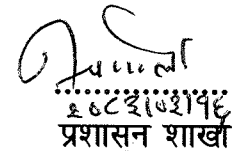 २०८३।०३।१६
प्रशासन शाखा